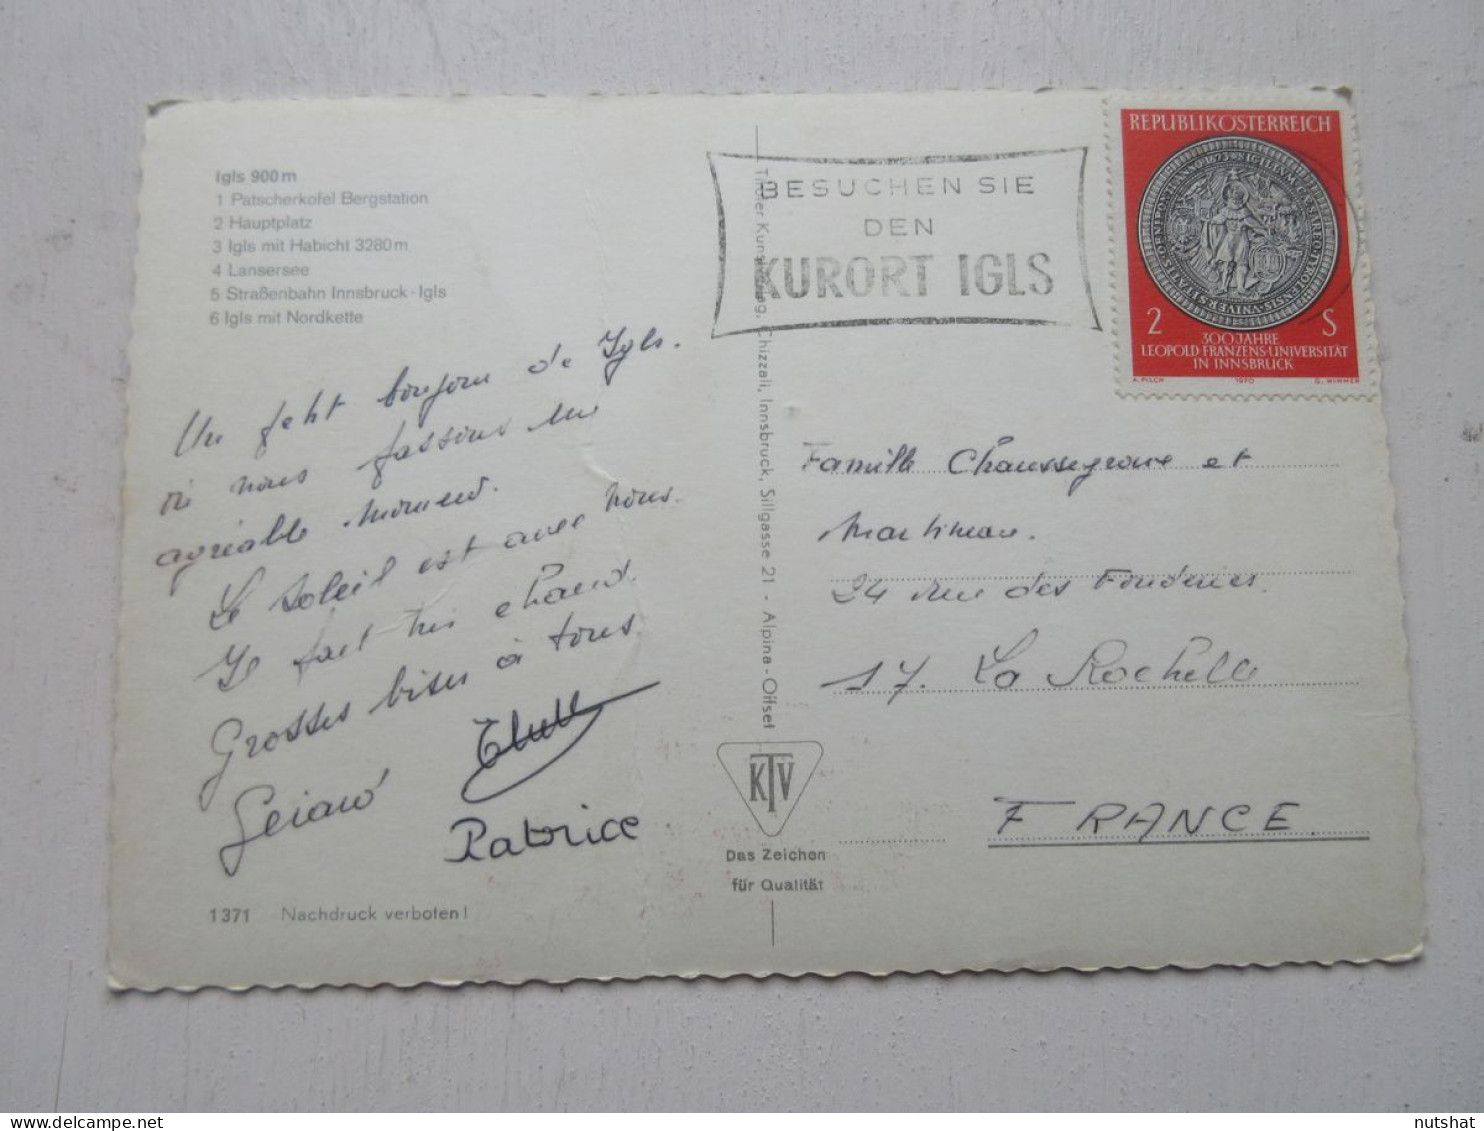 Igls 900m
1 Patscherkofel Bergstation
2 Hauptplatz
3 Igls mit Habicht 3280m
4 Lansersee
5 Straßenbahn Innsbruck-Igls
6 Igls mit Nordkette
Un petit bonjour de Igls.
où nous passons un
agréable moment.
Le soleil est avec nous.
Il fait très chaud.
Grosses bises à tous.
Patrice
1371 Nachdruck verboten!
Tiroler Kunstverlag, Chizzali, Innsbruck, Sillgasse 21 - Alpina-Offset
KTV
Das Zeichen
für Qualität
BESUCHEN SIE
DEN
KURORT IGLS
REPUBLIK ÖSTERREICH
2 S
300 JAHRE
LEOPOLD-FRANZENS-UNIVERSITÄT
IN INNSBRUCK
A. PILCH 1970 G. WIMMER
Famille Chaussegroue et
Martineau.
24 rue des Fonderies.
17. La Rochelle
FRANCE.
nutshat